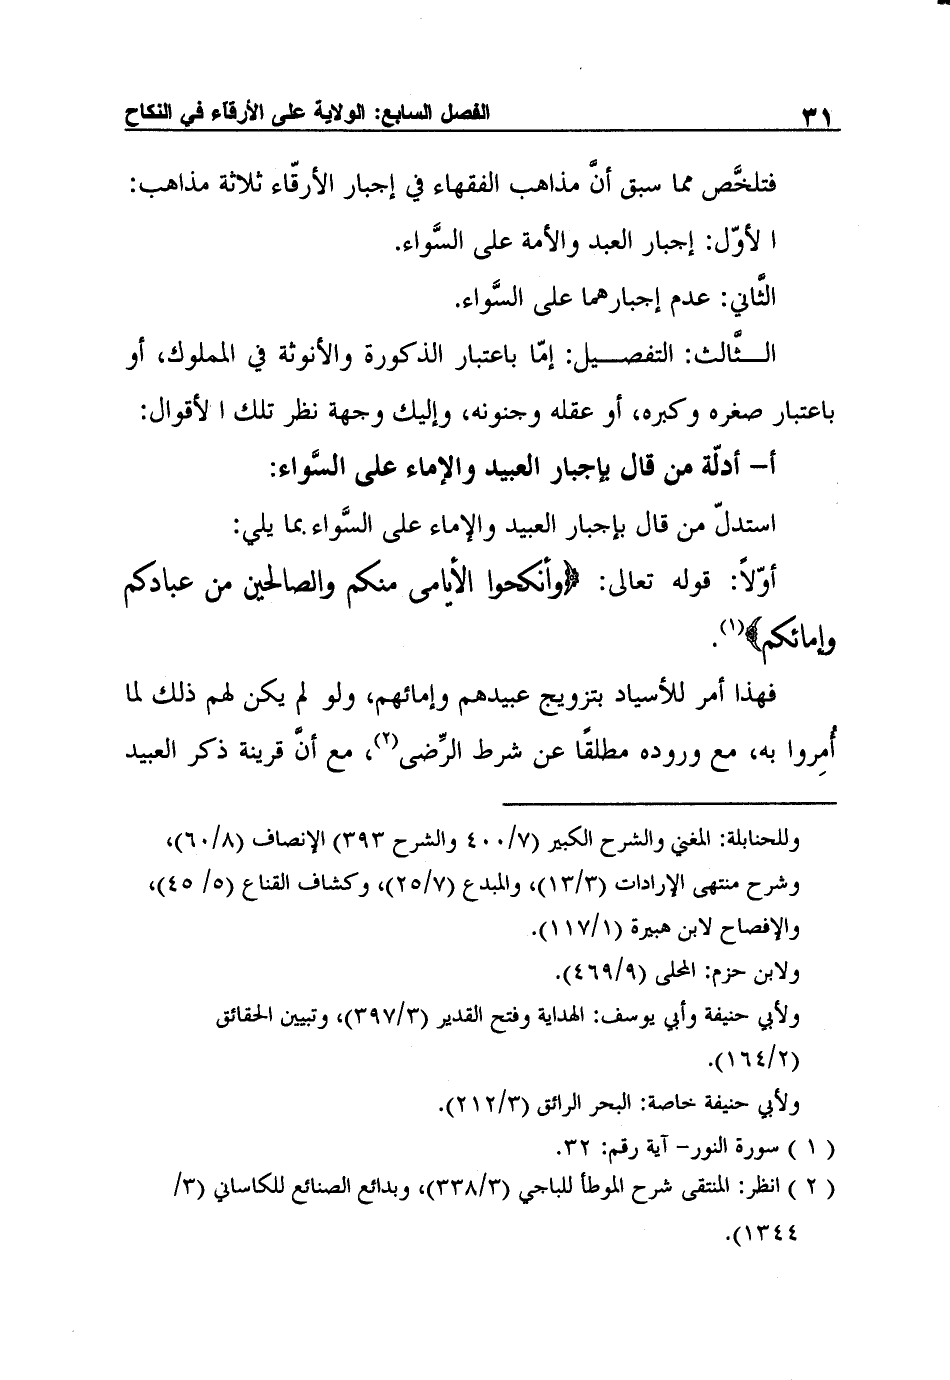 ٣١ الفصل السابع: الولاية على الأرقآء في النكاح
فتلخَّص مما سبق أنَّ مذاهب الفقهاء في إجبار الأرقّاء ثلاثة مذاهب:
الأوّل: إجبار العبد والأمة على السَّواء.
الثَّاني: عدم إجبارهما على السَّواء.
الـــثَّالث: التفصـــيل: إمّا باعتبار الذكورة والأنوثة في المملوك، أو
باعتبار صغره وكبره، أو عقله وجنونه، وإليك وجهة نظر تلك الأقوال:
أ- أدلّة من قال بإجبار العبيد والإماء على السَّواء:
استدلّ من قال بإجبار العبيد والإماء على السَّواء بما يلي:
أوّلاً: قوله تعالى: ﴿وأنكحوا الأيامى منكم والصالحين من عبادكم
وإمائكم﴾(١).
فهذا أمر للأسياد بتزويج عبيدهم وإمائهم، ولو لم يكن لهم ذلك لما
أُمِروا به، مع وروده مطلقًا عن شرط الرِّضى(٢)، مع أنَّ قرينة ذكر العبيد
وللحنابلة: المغني والشرح الكبير (٤٠٠/٧ والشرح ٣٩٣) الإنصاف (٦٠/٨)،
وشرح منتهى الإرادات (١٣/٣)، والمبدع (٢٥/٧)، وكشاف القناع (٥/ ٤٥)،
والإفصاح لابن هبيرة (١١٧/١).
ولابن حزم: المحلى (٤٦٩/٩).
ولأبي حنيفة وأبي يوسف: الهداية وفتح القدير (٣٩٧/٣)، وتبيين الحقائق
(١٦٤/٢).
ولأبي حنيفة خاصة: البحر الرائق (٢١٢/٣).
( ١ ) سورة النور- آية رقم: ٣٢.
( ٢ ) انظر: المنتقى شرح الموطأ للباجي (٣٣٨/٣)، وبدائع الصنائع للكاساني (٣/
١٣٤٤).